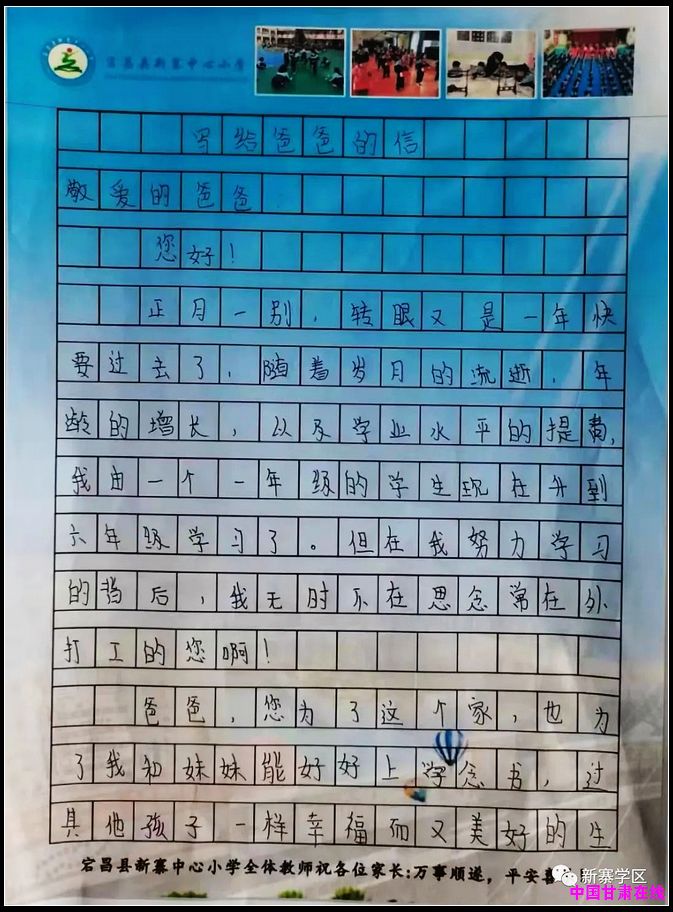 宕昌县新寨中心小学
写给爸爸的信
敬爱的爸爸
您好!
正月一别,转眼又是一年快
要过去了,随着岁月的流逝,年
龄的增长,以及学业水平的提高,
我由一个一年级的学生现在升到
六年级学习了。但在我努力学习
的档后,我无时不在思念常在外
打工的您啊!
爸爸,您为了这个家,也为
了我和妹妹能好好上学念书,过
其他孩子一样幸福而又美好的生
宕昌县新寨中心小学全体教师祝各位家长:万事顺遂,平安喜
新寨学区
中国甘肃在线